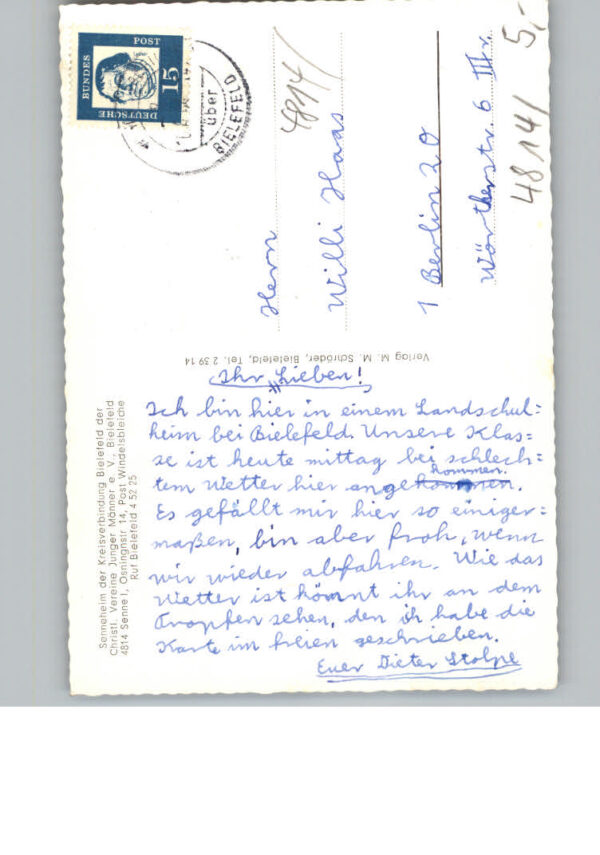 Ihr Lieben!
Ich bin hier in einem Landschul=
heim bei Bielefeld. Unsere Klas=
se ist heute mittag bei schlech=
tem Wetter hier angekommen.
kommen.
Es gefällt mir hier so einiger=
maßen, bin aber froh, wenn
wir wieder abfahren. Wie das
Wetter ist könnt ihr an dem
Tropfen sehen, den ich habe die
Karte im freien geschrieben.
Euer Dieter Stolpe
Herrn
Willi Haas
1 Berlin 20
Wörtherstr. 6 III r.
4814/
4814/
5,-
DEUTSCHE
BUNDES
POST
15
über
BIELEFELD
Verlag M. M. Schröder, Bielefeld, Tel. 2 39 14
Senneheim der Kreisverbindung Bielefeld der
Christl. Vereine Junger Männer e. V., Bielefeld
4814 Senne I, Osningnstr 14, Post Windelsbleiche
Ruf Bielefeld 4 52 25